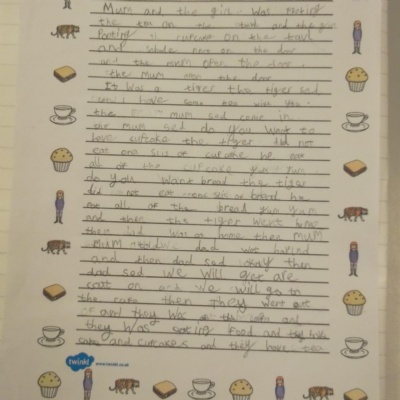 Mum and the girl was making
the tea on the and the girl
Pooting cupcake on the
and whale next on the dor
and the mum open the door.
the mum open the door
It was a tiger the tiger sed
can I have some tea with you.
the mum sed come in
the mum sed do you want to
have cupcake the tiger did not
eat one of cupcake he eat
all of the cupcake yum yum
do you want bread the tiger
did not eat one of bread he
eat all of the bread yum yum
and then the tiger went home
then dad was at home then mum
Mum dad
and then dad sed okay then
dad sed we will get are
coat on and we will go to
the cafe then They went out
and they was the cafe and
they was eating food and they
cake and cupcakes and they have tea
twinkl www.twinkl.co.uk